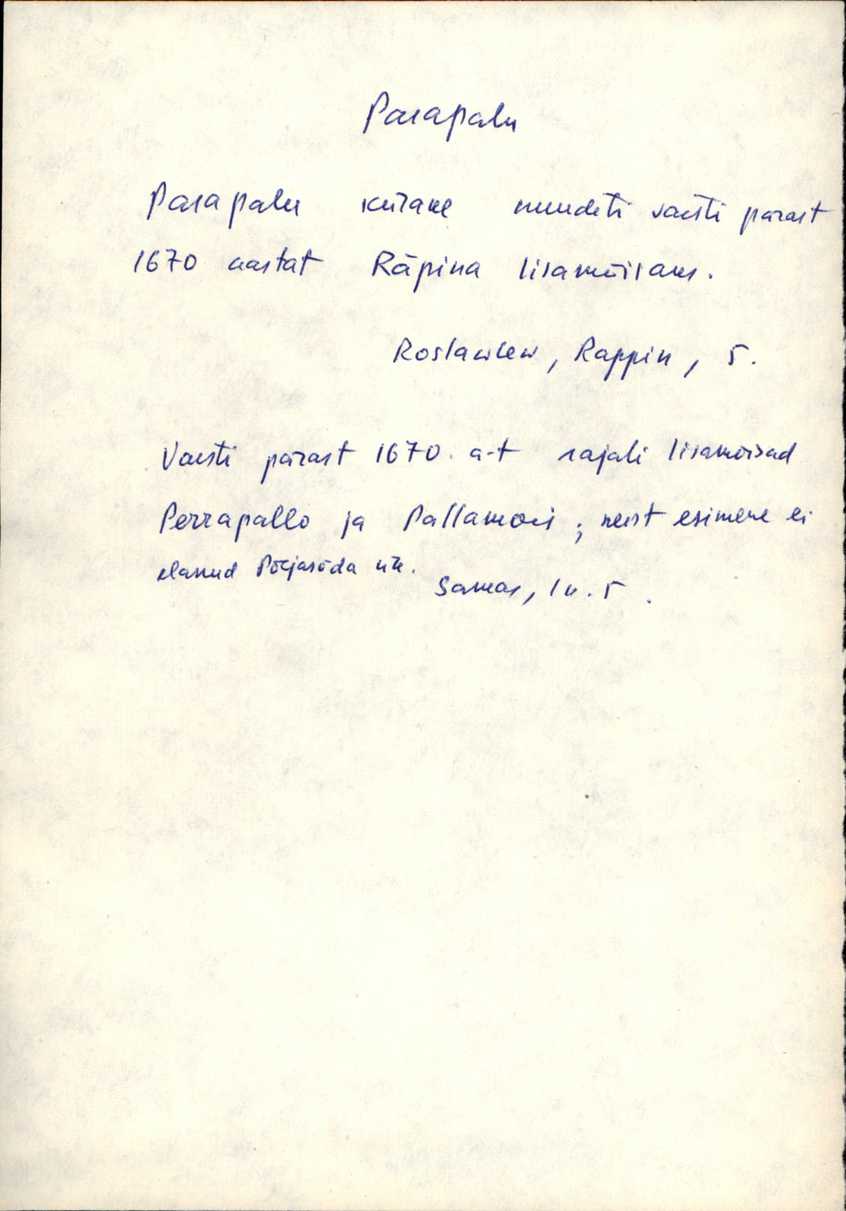 Parapalu
Parapalu muudeti varsti pärast
1670 aastat Räpina lisamõisaks.
Roslawlew, Rappin, 5.
Varsti pärast 1670. a-t rajati lisamõisad
Perrapallo ja Pallamois; neist esimene ei
elanud Põhjasõda üle.
Samas, lk. 5.